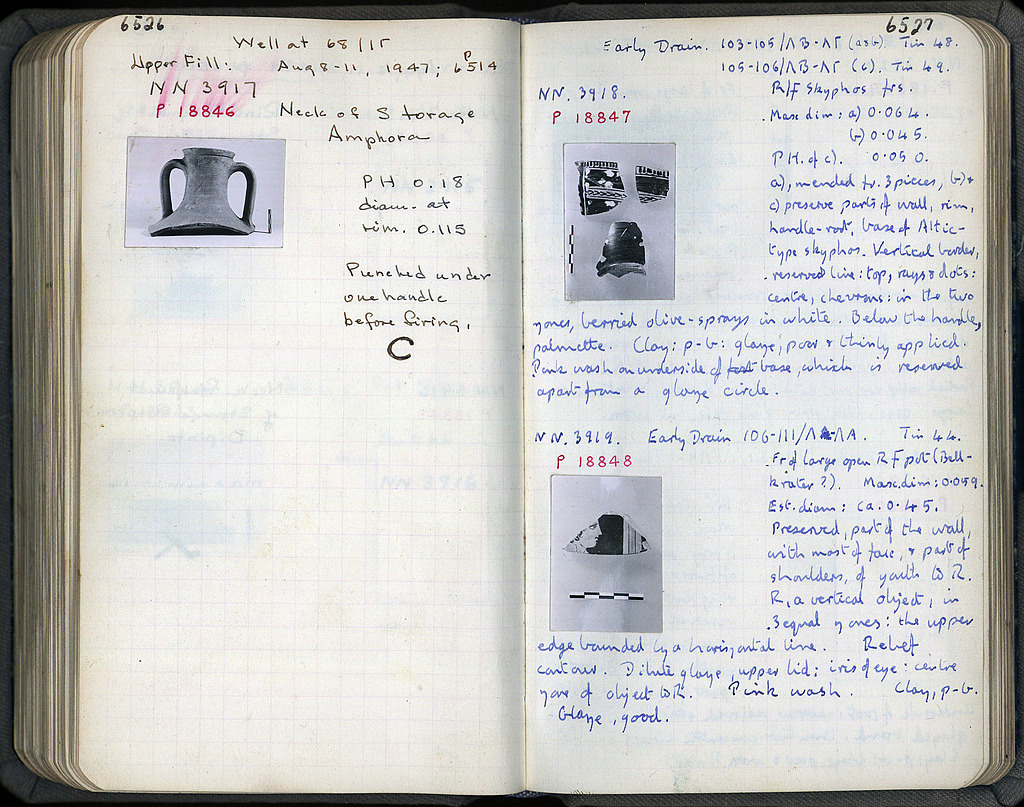 6526
Well at 68/ΙΓ
Upper Fill: Aug 8-11, 1947; P 6514
NN 3917
P 18846 Neck of Storage
Amphora
PH 0.18
diam. at
rim. 0.115
Punched under
one handle
before firing.
C
6527
Early Drain. 103-105/ΛΒ-ΛΓ (a&b). Tin 48.
105-106/ΛΒ-ΛΓ (c). Tin 49.
NN. 3918. R/f Skyphos frs.
P 18847 Max. dim: a) 0.064.
b) 0.045.
P.H. of c). 0.050.
a), mended fr. 3 pieces, b) &
c) preserve parts of wall, rim,
handle-root, base of Attic-
type skyphos. Vertical border,
reserved line: top, rays & dots:
centre, chevrons: in the two
zones, berried olive-sprays in white. Below the handle,
palmette. Clay: p-b: glaze, poor & thinly applied.
Pink wash on underside of base, which is reserved
apart from a glaze circle.
NN. 3919. Early Drain 106-111/ΛΑ. Tin 44.
P 18848 Fr of large open R F pot (Bell-
krater?). Max. dim: 0.059.
Est. diam: ca. 0.45.
Preserved, part of the wall,
with most of face, & part of
shoulders, of youth to R.
R, a vertical object, in
3 equal zones: the upper
edge bounded by a horizontal line. Relief
contour. Dilute glaze, upper lid: iris of eye: centre
zone of object to R. Pink wash. Clay, p-b.
Glaze, good.